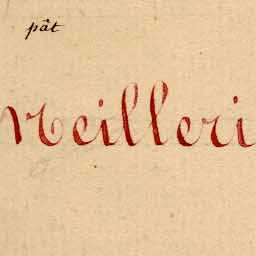 pât
Meilleri